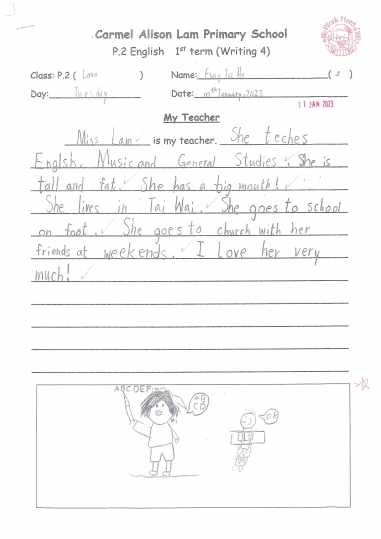 Carmel Alison Lam Primary School
P.2 English 1st term (Writing 4)
Class: P.2 ( Love ) Name: Fung Tsz Ho ( 2 )
Day: Tuesday Date: 10th January, 2023
11 JAN 2023
My Teacher
Miss Lam is my teacher. She teches
Englsh, Music and General Studies. She is
tall and fat. She has a big mouth!
She lives in Tai Wai. She goes to school
on foot. She goes to church with her
friends at weekends. I Love her very
much!
ABCDEF
AB
CD
OK